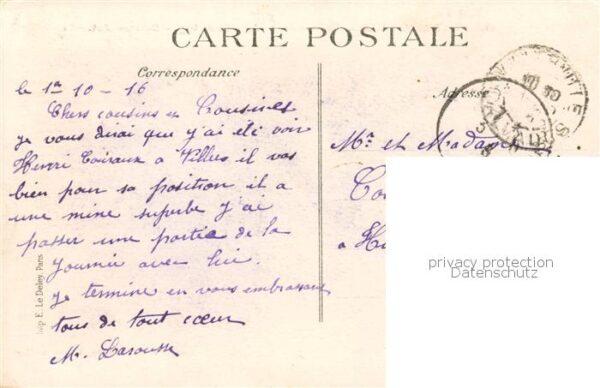 CARTE POSTALE
Correspondance
Adresse
le 1er 10 - 16
Chers cousins et Cousines
je vous dirai que j'ai été voir
Henri à il vas
bien pour sa position il a
une mine superbe j'ai
passer une partie de la
journée avec lui.
je termine en vous embrassant
tous de tout cœur
M. Larousse
Mr et Madame
a
Imp E. Le Deley Paris
privacy protection
Datenschutz